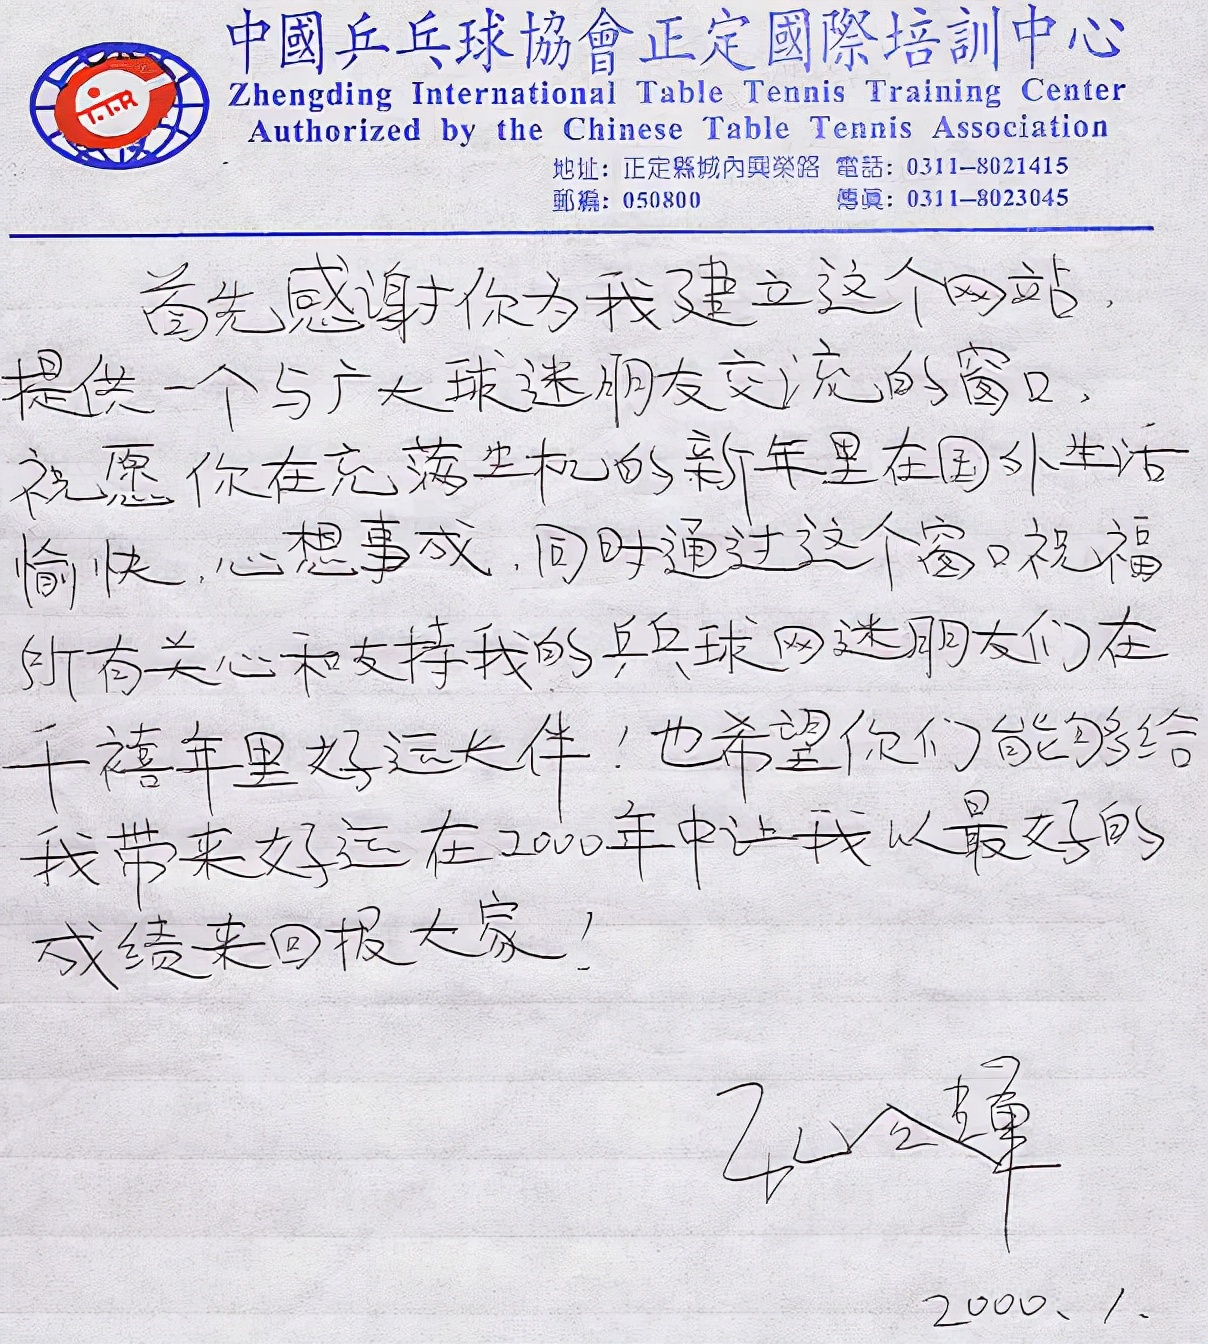 中國乒乓球協會正定國際培訓中心
I.T.T.R
Zhengding International Table Tennis Training Center
Authorized by the Chinese Table Tennis Association
地址: 正定縣城內興榮路 電話: 0311-8021415
郵編: 050800 傳眞: 0311-8023045
首先感谢你为我建立这个网站,
提供一个与广大球迷朋友交流的窗口,
祝愿你在充满生机的新年里在国外生活
愉快,心想事成,同时通过这个窗口祝福
所有关心和支持我的乒乓球网迷朋友们在
千禧年里好运长伴!也希望你们能够给
我带来好运在2000年中让我以最好的
成绩来回报大家!
孔令輝
2000、1.